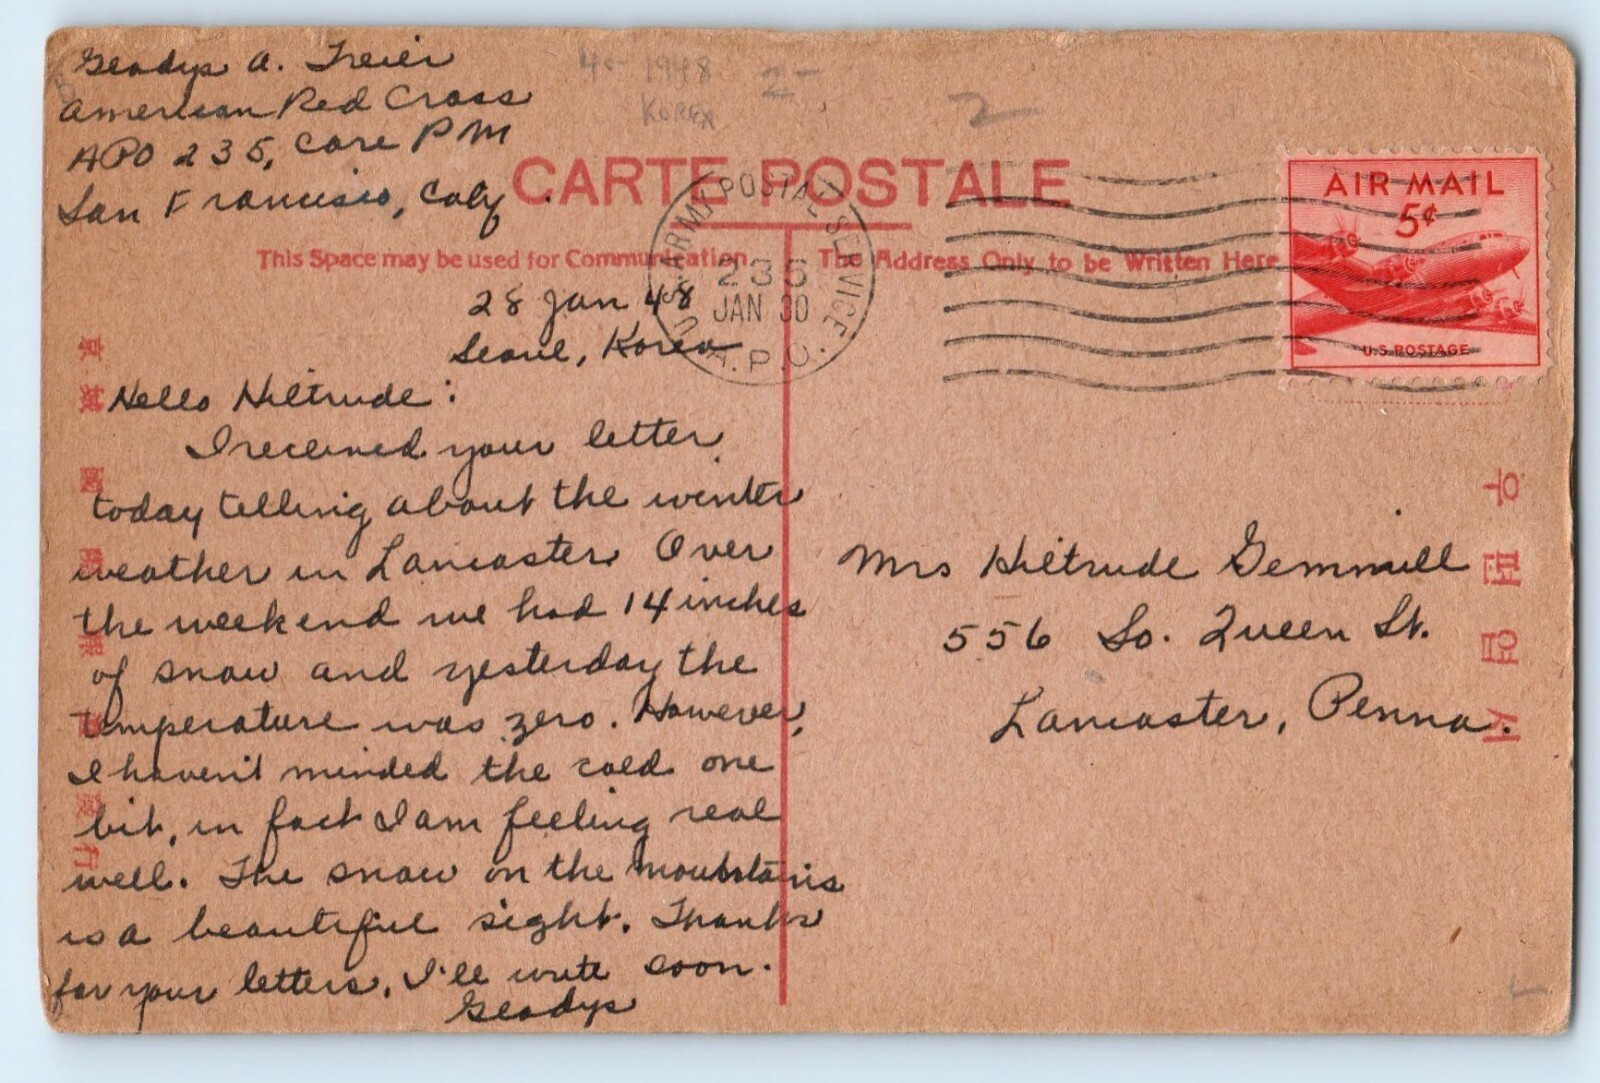 Gladys A. Freier
American Red Cross
APO 235, Care PM
San Francisco, Calif
1948
KOREA
2
CARTE POSTALE
This Space may be used for Communication
The Address Only to be Written Here
U.S. ARMY POSTAL SERVICE
235
JAN 30
A.P.O.
AIR MAIL
5¢
U.S. POSTAGE
28 Jan 48
Seoul, Korea
Hello Hiltrude:
I received your letter
today telling about the winter
weather in Lancaster. Over
the weekend we had 14 inches
of snow and yesterday the
temperature was zero. However,
I haven't minded the cold one
bit, in fact I am feeling real
well. The snow on the mountains
is a beautiful sight. Thanks
for your letters. I'll write soon.
Gladys
Mrs Hiltrude Gemmill
556 So. Queen St.
Lancaster, Penna.
우편엽서
京城
行